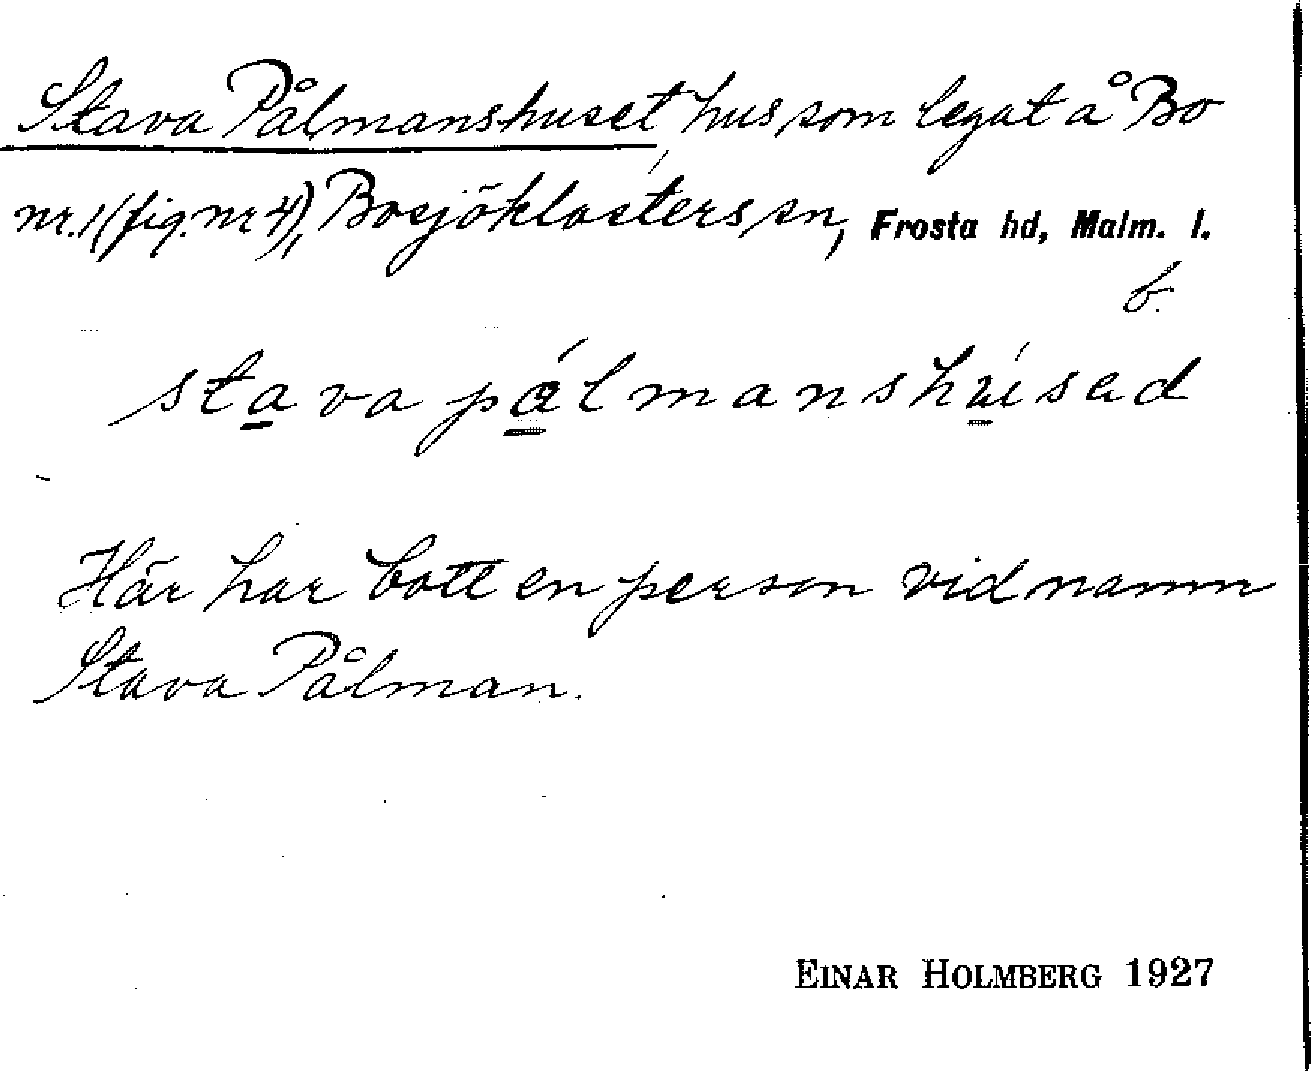 Stava Pålmanshuset, hus som legat å Bo
nr. 1 (fig. nr 4), Bosjöklosters sn, Frosta hd, Malm. l.
b.
stava pålmanshúsad
Här har bott en person vid namn
Stava Pålman.
EINAR HOLMBERG 1927